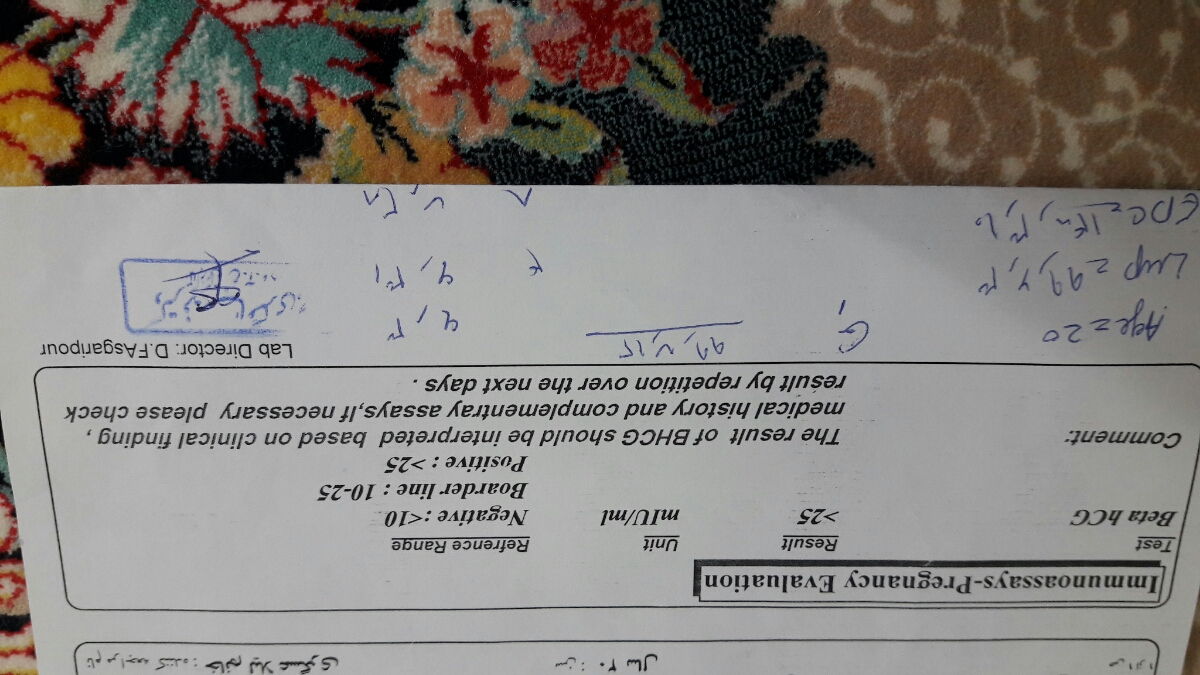 نام مراجعه کننده : خانم لیلا عسگری سن : ۲۰ سال
Immunoassays-Pregnancy Evaluation
Test Result Unit Refrence Range
Beta hCG >25 mIU/ml Negative :<10
Boarder line : 10-25
Positive : >25
Comment: The result of BHCG should be interpreted based on clinical finding ,
medical history and complementray assays,If necessary please check
result by repetition over the next days .
Lab Director: D.FAsgaripour
Age = 20 G1
Lmp =
EDC =